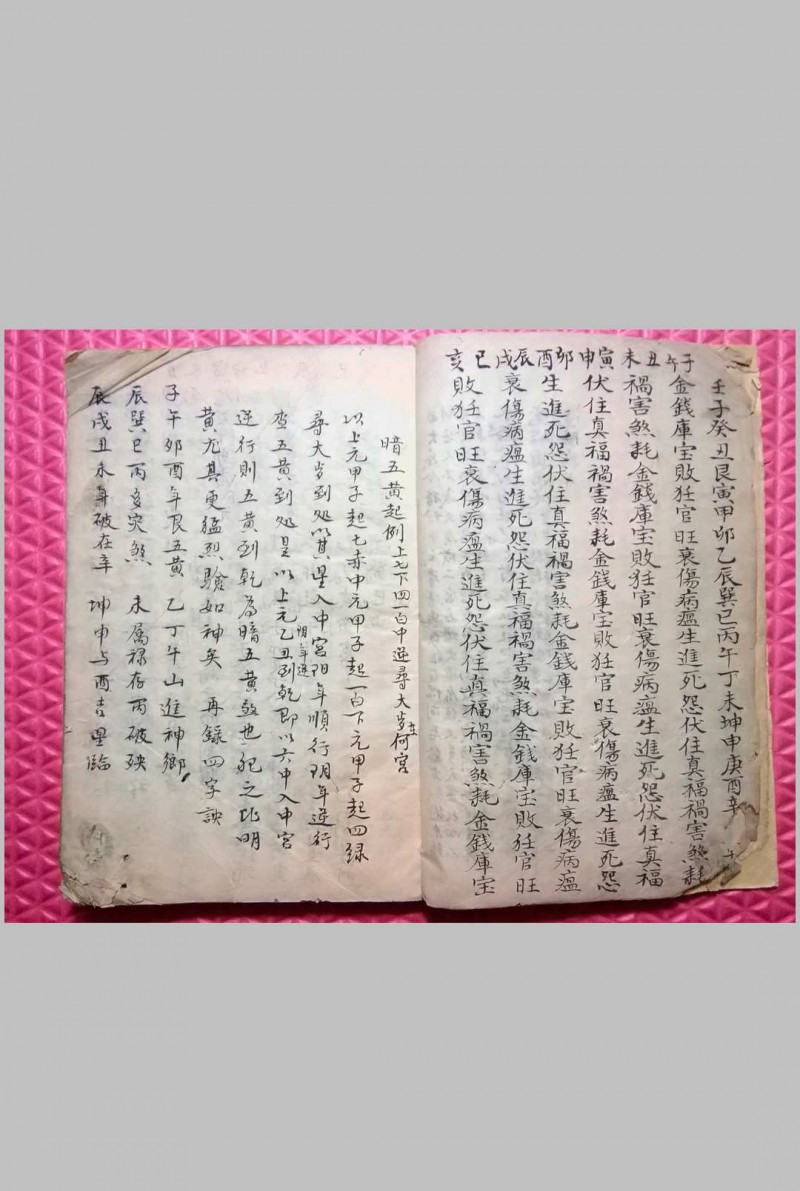 壬子癸丑艮寅甲卯乙辰巽巳丙午丁未坤申庚酉辛
子午 金錢庫宝敗狂官旺衰傷病瘟生進死怨伏住真福禍害煞耗
丑未 禍害煞耗金錢庫宝敗狂官旺衰傷病瘟生進死怨伏住真福
寅申 伏住真福禍害煞耗金錢庫宝敗狂官旺衰傷病瘟生進死怨
卯酉 生進死怨伏住真福禍害煞耗金錢庫宝敗狂官旺衰傷病瘟
辰戌 衰傷病瘟生進死怨伏住真福禍害煞耗金錢庫宝敗狂官旺
巳亥 敗狂官旺衰傷病瘟生進死怨伏住真福禍害煞耗金錢庫宝
暗五黄起例上七下四一白中逆尋大岁在何宮
以上元甲子起七赤中元甲子起一白下元甲子起四録
尋大岁到処以其星入中宮阳年順行阴年逆行
查五黄到処是以上元乙丑到乾即以六中入中宮阴年逆
逆行則五黄到乾為暗五黄煞也犯之比明
黄尤其更猛烈驗如神矣 再録四字訣
子午卯酉年艮五黄 乙丁午山進神鄉
辰巽巳丙多灾煞 未属禄存丙破殃
辰戌丑未年破在辛 坤申与酉吉星臨